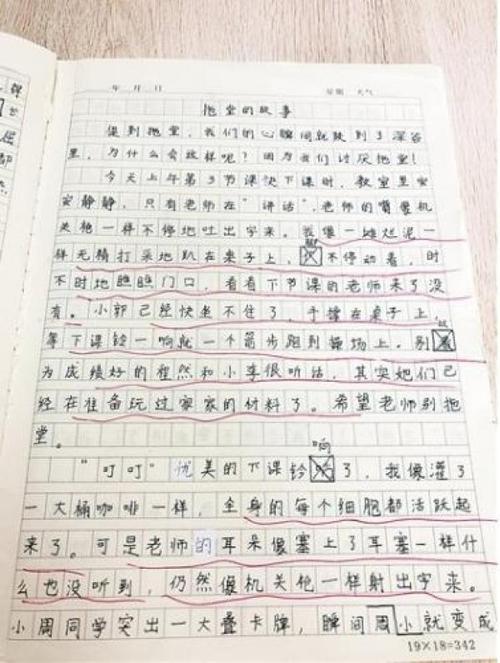 年 月 日 星期 天气
拖堂的故事
提到拖堂,我们的心瞬间就跌到了深谷
里,为什么会这样呢?因为我们讨厌拖堂!
今天上午第3节课快下课时,教室里安
安静静,只有老师在“讲话”,老师的嘴里机
关枪一样不停地吐出字来。我像一堆烂泥一
样无精打采地趴在桌子上,不停动着,时
不时地瞧瞧门口,看看下节课的老师来了没
有。小郭已经快坐不住了,手撑在桌子上,
等下课铃一响就一个箭步跑到操场上。别
为成绩好的程然和小李很听话,其实她们已
经在准备玩过家家的材料了。希望老师别拖
堂。
响
“叮叮”优美的下课铃了,我像灌了
一大桶咖啡一样,全身的每个细胞都活跃起
来了。可是老师的耳朵像塞上了耳塞一样什
么也没听到,仍然像机关枪一样射出字来。
小周同学突出一大叠卡牌,瞬间周小就变成
19×18=342